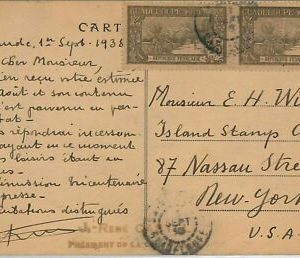 CARTE
ude, 1er Sept. 1938
Cher Monsieur,
ien reçu votre estimée
août et son contenu
est parvenu en par
tat.
répondrai incessam
ayant en ce moment
loisirs étant en
es.
émission Bicentenaire
presse.
utations distingués
J. RENÉ
PRÉSIDENT DE LA
GUADELOUPE
RÉPUBLIQUE FRANÇAISE
GUADELOUPE
RÉPUBLIQUE FRANÇAISE
Monsieur E. H. Wi
Island Stamp C
87 Nassau Stree
New-York
U.S.A
SEPT